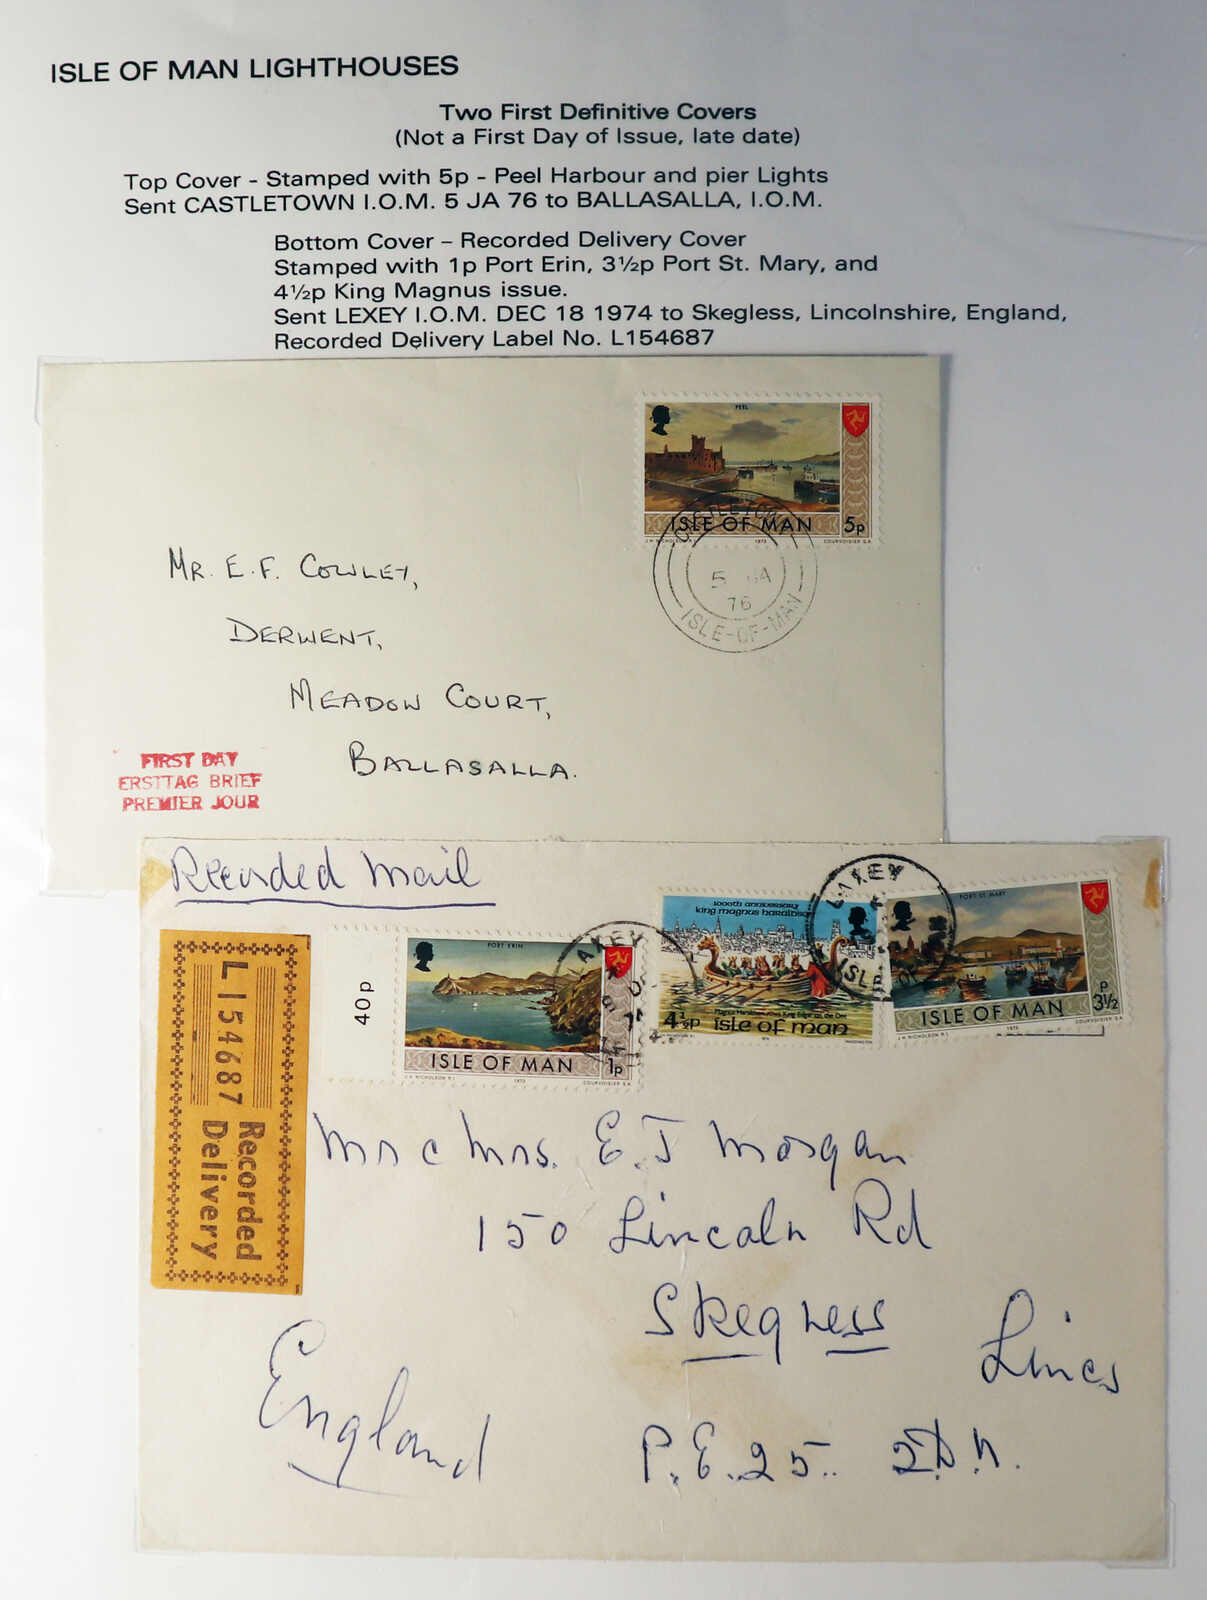 ISLE OF MAN LIGHTHOUSES
Two First Definitive Covers
(Not a First Day of Issue, late date)
Top Cover - Stamped with 5p - Peel Harbour and pier Lights
Sent CASTLETOWN I.O.M. 5 JA 76 to BALLASALLA, I.O.M.
Bottom Cover – Recorded Delivery Cover
Stamped with 1p Port Erin, 3½p Port St. Mary, and
4½p King Magnus issue.
Sent LEXEY I.O.M. DEC 18 1974 to Skegless, Lincolnshire, England,
Recorded Delivery Label No. L154687
PEEL
ISLE OF MAN 5p
J.H. NICHOLSON R.I. 1973 COURVOISIER S.A.
CASTLETOWN
5 JA
76
ISLE-OF-MAN
MR. E.F. COWLEY,
DERWENT,
MEADOW COURT,
BALLASALLA.
FIRST DAY
ERSTTAG BRIEF
PREMIER JOUR
Recorded Mail
L 154687
Recorded
Delivery
40p
PORT ERIN
ISLE OF MAN 1p
J.H. NICHOLSON R.I. 1973 COURVOISIER S.A.
LAXEY
1000th anniversary
king magnus haraldson
4½p isle of man
LAXEY
ISLE OF
PORT ST. MARY
ISLE OF MAN 3½p
J.H. NICHOLSON R.I. 1973 COURVOISIER S.A.
Mr & Mrs. E.J Morgan
150 Lincoln Rd
Skegness
Lincs
England
P.E.25. 2D.N.